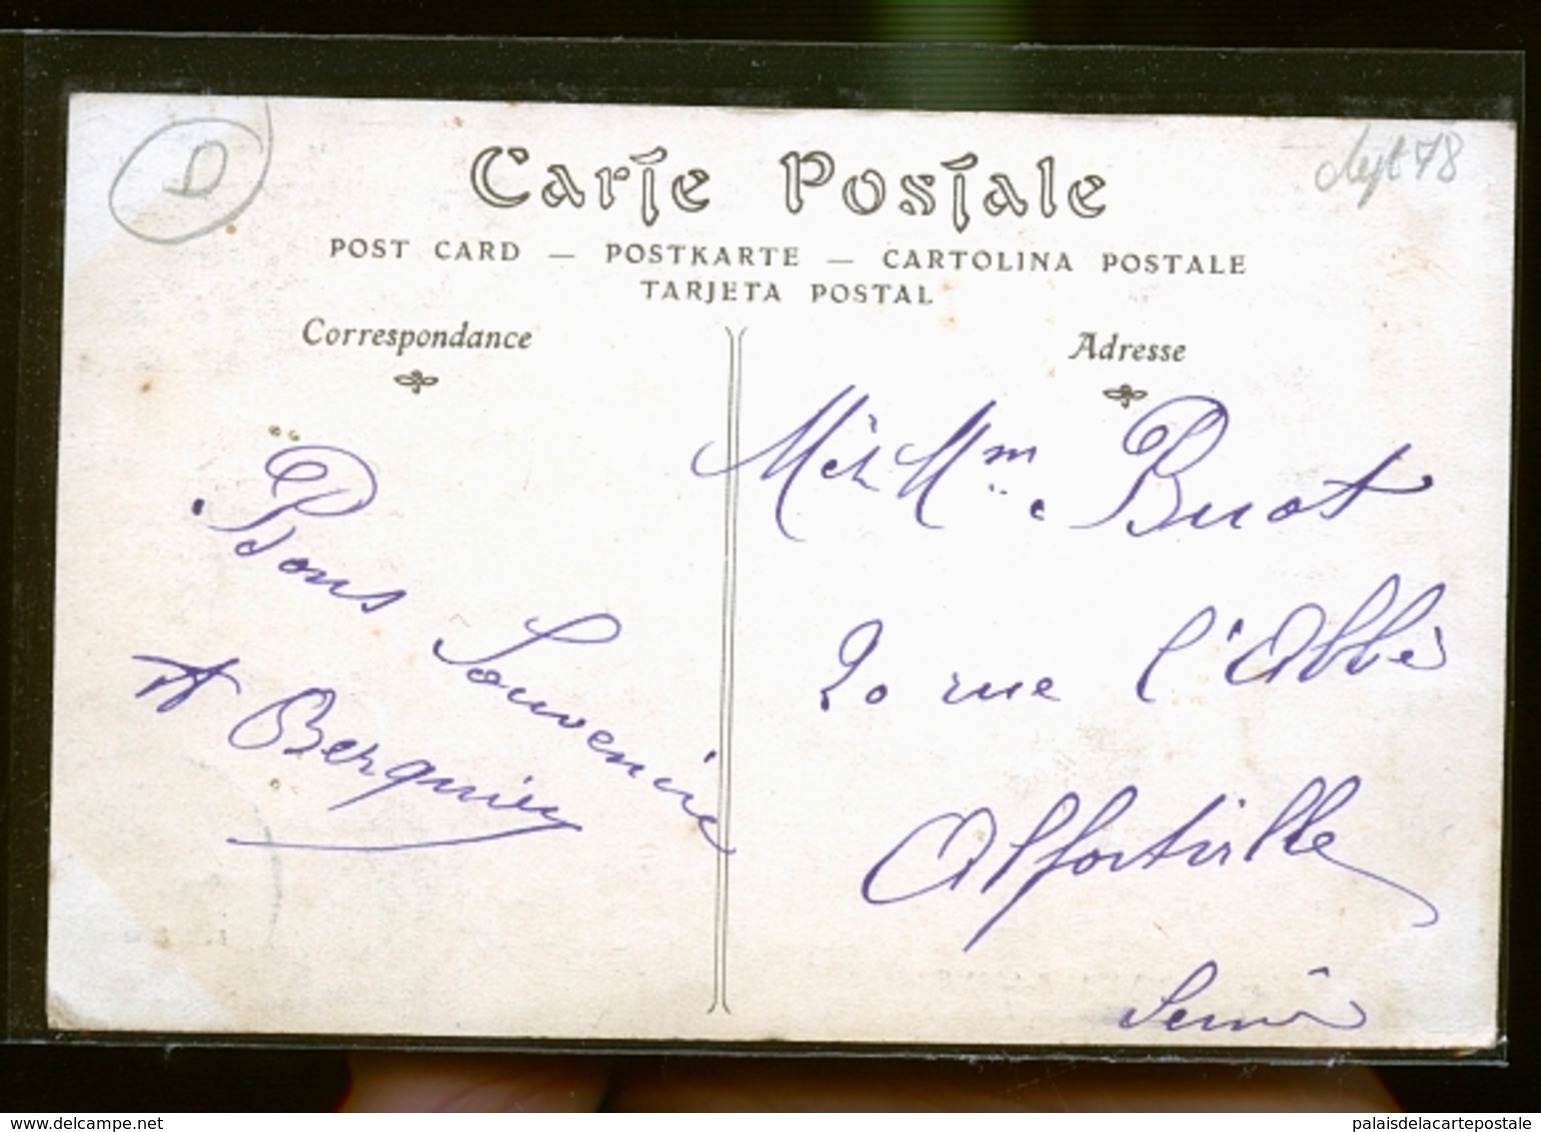 D
dept 78
Carte Postale
POST CARD — POSTKARTE — CARTOLINA POSTALE
TARJETA POSTAL
Correspondance
Adresse
Bons Souvenirs
A Berquier
M et Mme Buat
20 rue l'Abbé
Alfortville
Seine
www.delcampe.net
palaisdelacartepostale